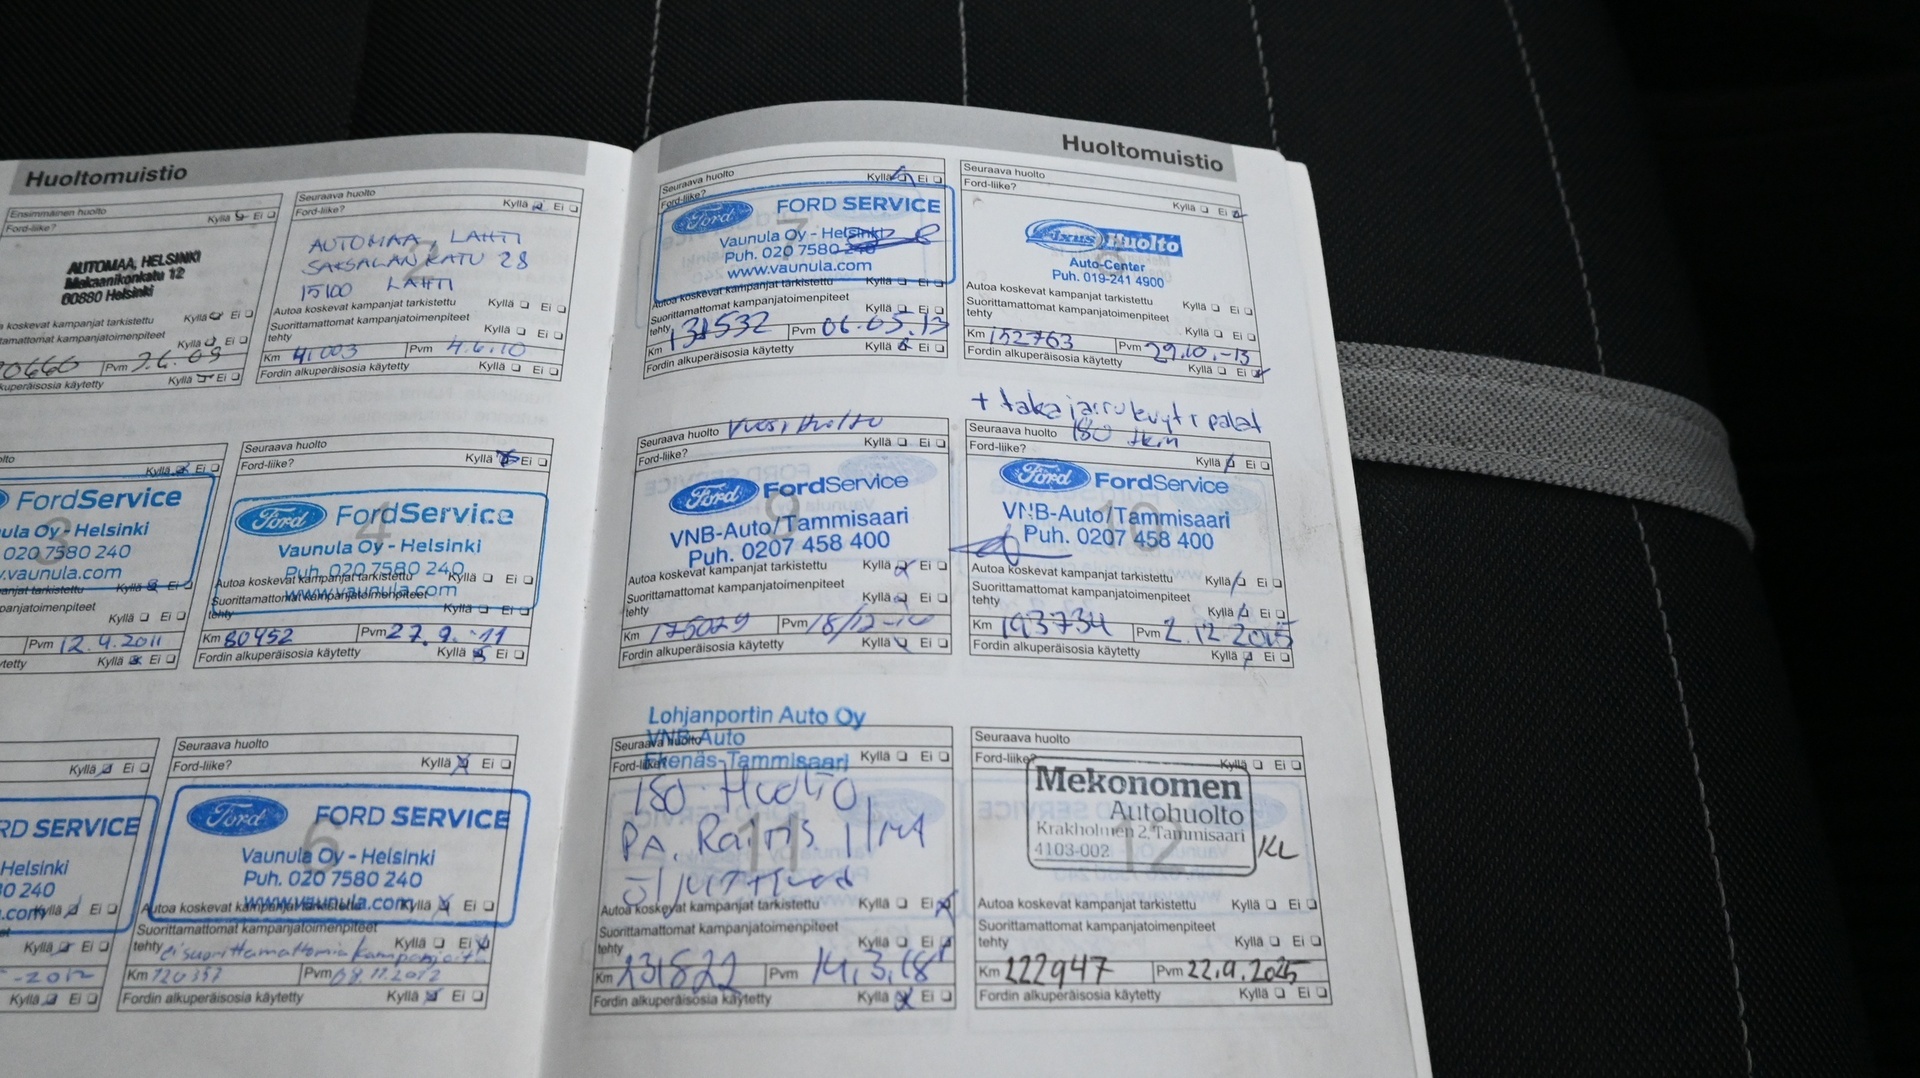 Huoltomuistio
Ensimmäinen huolto
Kyllä Ei
Ford-liike?
AUTOMAA, HELSINKI
Mekaanikonkatu 12
00880 Helsinki
koskevat kampanjat tarkistettu
Kyllä Ei
kampanjatoimenpiteet
Kyllä Ei
Pvm
käytetty
Kyllä Ei
Seuraava huolto
Ford-liike?
Kyllä Ei
AUTOMAA, LAHTI
SAKSALANKATU 28
15100 LAHTI
2
Autoa koskevat kampanjat tarkistettu
Kyllä Ei
Suorittamattomat kampanjatoimenpiteet
tehty
Kyllä Ei
Km 41003
Pvm 4.6.10
Fordin alkuperäisosia käytetty
Kyllä Ei
Kyllä Ei
FordService
3
Oy - Helsinki
020 7580 240
vaunula.com
Kyllä Ei
Kyllä Ei
Pvm 12.4.2011
Kyllä Ei
Seuraava huolto
Ford-liike?
Kyllä Ei
Ford FordService
4
Vaunula Oy - Helsinki
Puh. 020 7580 240
www.vaunula.com
Autoa koskevat kampanjat tarkistettu
Kyllä Ei
Suorittamattomat kampanjatoimenpiteet
tehty
Kyllä Ei
Km 80452
Pvm 27.9.-11
Fordin alkuperäisosia käytetty
Kyllä Ei
Kyllä Ei
SERVICE
Helsinki
240
Kyllä Ei
Kyllä Ei
Kyllä Ei
Seuraava huolto
Ford-liike?
Kyllä Ei
Ford FORD SERVICE
6
Vaunula Oy - Helsinki
Puh. 020 7580 240
www.vaunula.com
Autoa koskevat kampanjat tarkistettu
Kyllä Ei
Suorittamattomat kampanjatoimenpiteet
tehty ei suorittamattomia kampanjoita
Kyllä Ei
Km 120357
Pvm 08.11.2012
Fordin alkuperäisosia käytetty
Kyllä Ei
Huoltomuistio
Seuraava huolto
Kyllä Ei
Ford-liike?
Ford FORD SERVICE
7
Vaunula Oy - Helsinki
Puh. 020 7580 240
www.vaunula.com
Autoa koskevat kampanjat tarkistettu
Kyllä Ei
Suorittamattomat kampanjatoimenpiteet
tehty
Kyllä Ei
Km 131532
Pvm 06.05.13
Fordin alkuperäisosia käytetty
Kyllä Ei
Seuraava huolto
Ford-liike?
Kyllä Ei
Huolto
Auto-Center
Puh. 019-241 4900
Autoa koskevat kampanjat tarkistettu
Kyllä Ei
Suorittamattomat kampanjatoimenpiteet
tehty
Kyllä Ei
Km 152763
Pvm 29.10.-13
Fordin alkuperäisosia käytetty
Kyllä Ei
Seuraava huolto Vuosihuolto
Kyllä Ei
Ford-liike?
Ford FordService
9
VNB-Auto/Tammisaari
Puh. 0207 458 400
Autoa koskevat kampanjat tarkistettu
Kyllä Ei
Suorittamattomat kampanjatoimenpiteet
tehty
Kyllä Ei
Km 175029
Pvm
Fordin alkuperäisosia käytetty
Kyllä Ei
+ takajarrulevyt + palat
Seuraava huolto 180 tkm
Ford-liike?
Kyllä Ei
Ford FordService
10
VNB-Auto/Tammisaari
Puh. 0207 458 400
Autoa koskevat kampanjat tarkistettu
Kyllä Ei
Suorittamattomat kampanjatoimenpiteet
tehty
Kyllä Ei
Km 193734
Pvm 2.12.2015
Fordin alkuperäisosia käytetty
Kyllä Ei
Lohjanportin Auto Oy
VNB-Auto
Ekenäs-Tammisaari
Seuraava huolto
Ford-liike?
Kyllä Ei
11
Autoa koskevat kampanjat tarkistettu
Kyllä Ei
Suorittamattomat kampanjatoimenpiteet
tehty
Kyllä Ei
Km
Pvm 14.3.18
Fordin alkuperäisosia käytetty
Kyllä Ei
Seuraava huolto
Ford-liike?
Kyllä Ei
Mekonomen
Autohuolto
Krakholmen 2, Tammisaari
4103-002
KL
12
Autoa koskevat kampanjat tarkistettu
Kyllä Ei
Suorittamattomat kampanjatoimenpiteet
tehty
Kyllä Ei
Km 222947
Pvm 22.9.2025
Fordin alkuperäisosia käytetty
Kyllä Ei